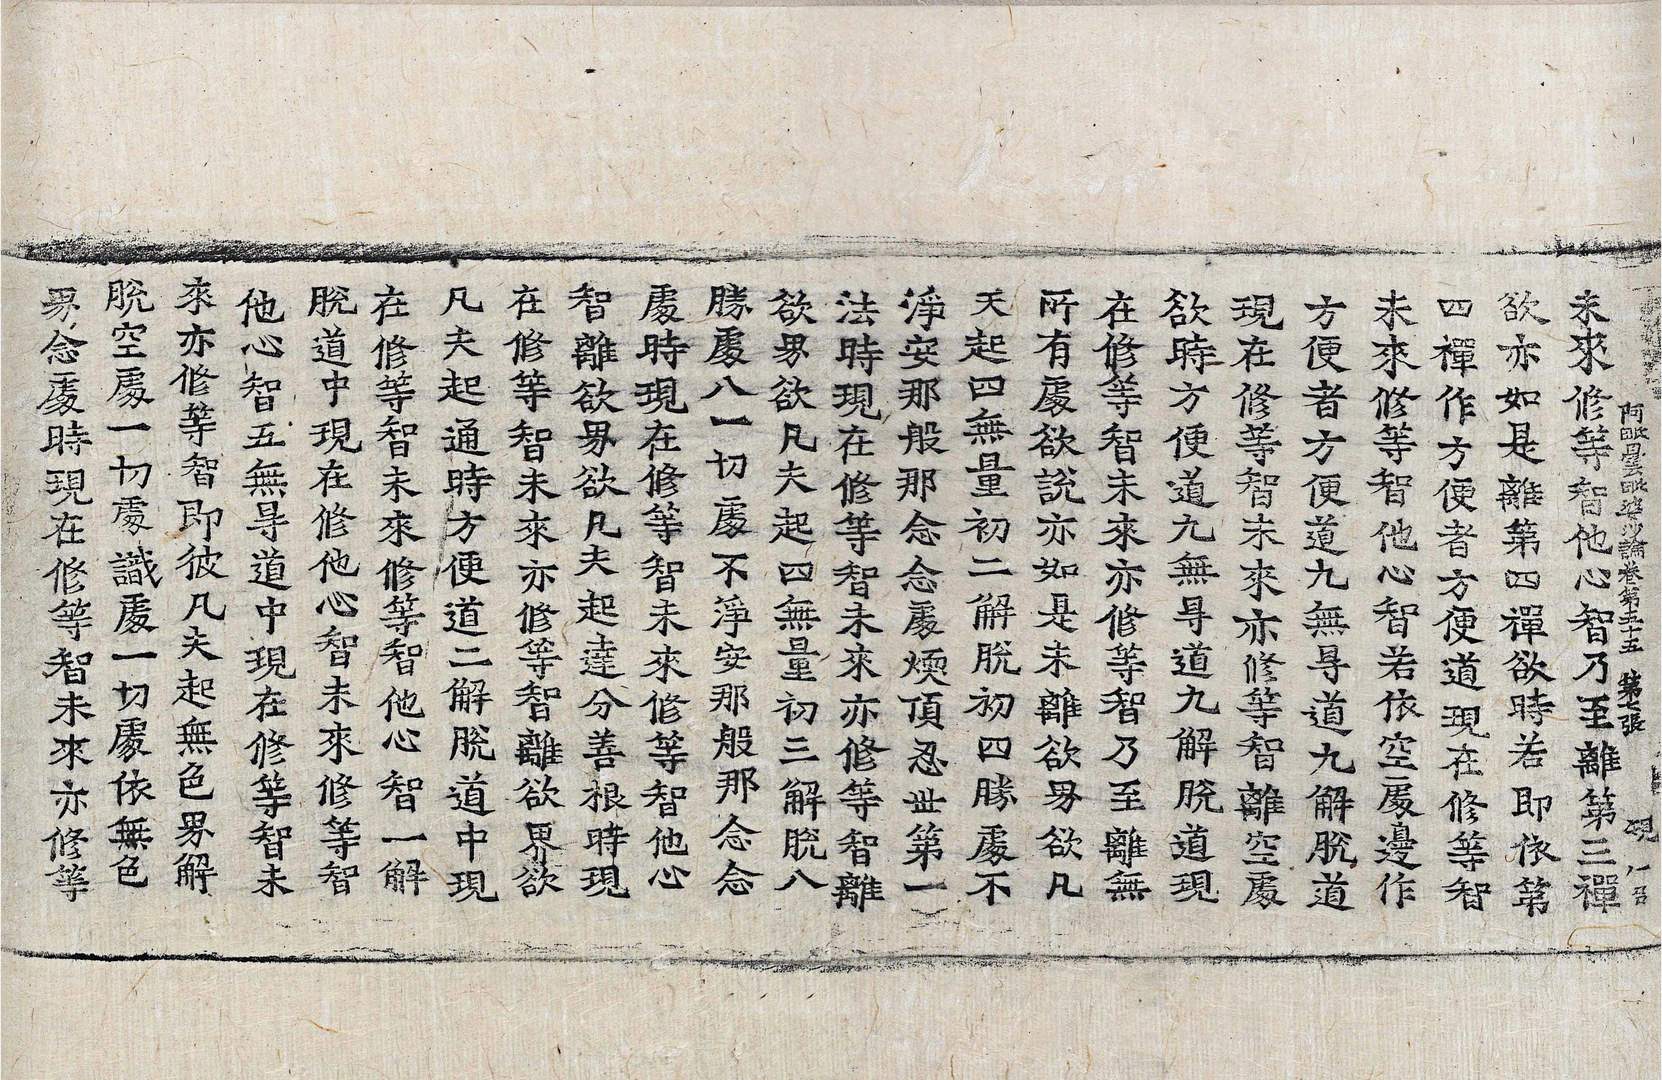 阿毗曇毗婆沙論卷第五十五　第七張
未來修等智他心智乃至離第三禪
欲亦如是離第四禪欲時若即依第
四禪作方便者方便道現在修等智
未來修等智他心智若依空處邊作
方便者方便道九無㝵道九解脫道
現在修等智未來亦修等智離空處
欲時方便道九無㝵道九解脫道現
在修等智未來亦修等智乃至離無
所有處欲說亦如是未離欲界欲凡
夫起四無量初二解脫初四勝處不
淨安那般那念念處煗頂忍世第一
法時現在修等智未來亦修等智離
欲界欲凡夫起四無量初三解脫八
勝處八一切處不淨安那般那念念
處時現在修等智未來修等智他心
智離欲界欲凡夫起達分善根時現
在修等智未來亦修等智離欲界欲
凡夫起通時方便道二解脫道中現
在修等智未來修等智他心智一解
脫道中現在修他心智未來修等智
他心智五無㝵道中現在修等智未
來亦修等智即彼凡夫起無色界解
脫空處一切處識處一切處依無色
界念處時現在修等智未來亦修等